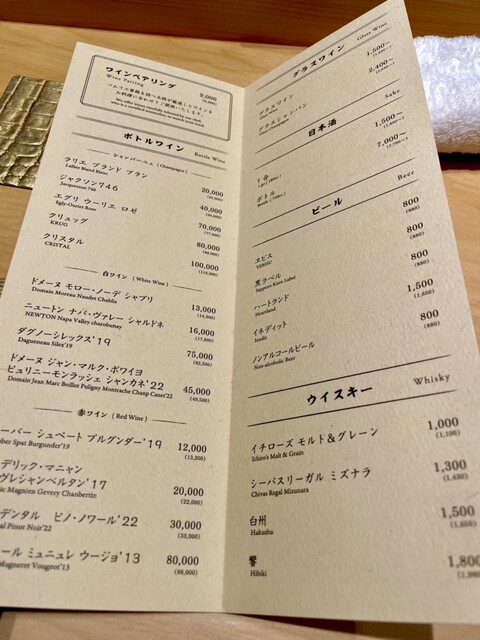 ワインペアリング
Wine Pairing
9,000
(9,900)
ソムリエ資格を持つ大将が厳選したワインを
お料理に合わせてご提供いたします。
ボトルワイン
Bottle Wine
シャンパーニュ ( Champagne )
ラリエ ブランド ブラン
Lallier Blanc Blanc
20,000
(22,000)
ジャクソン746
Jacquesson 746
40,000
(44,000)
エグリ ウーリエ ロゼ
Egly-Ouriet Rose
70,000
(77,000)
クリュッグ
KRUG
80,000
(88,000)
クリスタル
CRISTAL
100,000
(110,000)
白ワイン ( White Wine )
ドメーヌ モロー・ノーデ シャブリ
Domain Moreau Naudet Chablis
13,000
(14,300)
ニュートン ナパ・ヴァレー シャルドネ
NEWTON Napa Valley chardonnay
16,000
(17,600)
ダグノーシレックス'19
Dagueneau Silex'19
75,000
(82,500)
ドメーヌ ジャン・マルク・ボワイヨ
ピュリニーモンラッシェ シャンカネ'22
Domain Jean Marc Boillot Puligny Montrache Chanp Canet'22
45,000
(49,500)
赤ワイン ( Red Wine )
ーパー シュペート ブルグンダー'19
ber Spat Burgunder'19
12,000
(13,200)
デリック・マニャン
ヴレシャンベルタン'17
ic Magnien Gevrey Chanbertin
20,000
(22,000)
デンタル ピノ・ノワール'22
al Pinot Noir'22
30,000
(33,000)
ール ミュニュレ ウージョ'13
Mugneret Vougeot'13
80,000
(88,000)
グラスワイン
Glass Wine
グラスワイン
1,500〜
グラスシャンパン
2,400〜
日本酒
Sake
1合
1,500〜
ボトル
7,000〜
ビール
Beer
ヱビス
YEBISU
800
(880)
黒ラベル
Sapporo Kuro Label
800
(880)
ハートランド
Heartland
800
(880)
イネディット
Inedit
1,500
(1,650)
ノンアルコールビール
Non-alcoholic Beer
800
(880)
ウイスキー
Whisky
イチローズ モルト&グレーン
Ichiro's Malt & Grain
1,000
(1,100)
シーバスリーガル ミズナラ
Chivas Regal Mizunara
1,300
(1,430)
白州
Hakushu
1,500
(1,650)
響
Hibiki
1,800
(1,980)